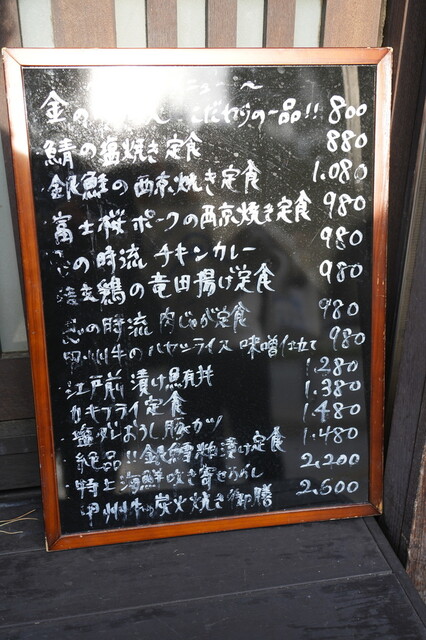 ニュー 〜
金の こだわりの一品!! 800
鯖の塩焼き定食 880
銀鮭の西京焼き定食 1.080
富士桜ポークの西京焼き定食 980
の時流 チキンカレー 980
鶏の竜田揚げ定食 980
の時流 肉じゃが定食 980
甲州牛のハヤシライス 味噌仕立て 980
江戸前 漬け鮪丼 1.280
カキフライ定食 1.380
豚カツ 1.480
絶品!!銀鱈粕漬け定食 1.480
特上 海鮮吹き寄せちらし 2.200
甲州牛の炭火焼き御膳 2.600